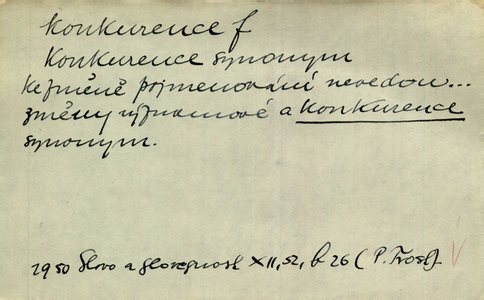 konkurence f
Konkurence synonym
ke změně pojmenování nevedou...
změny významové a konkurence
synonym.
1950 Slovo a slovesnost XII, 52, b 26 (P. Trost)